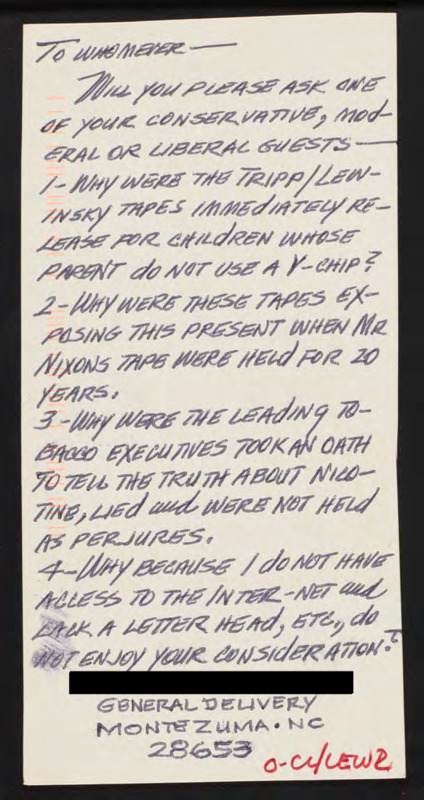 TO WHOMEVER —
WILL YOU PLEASE ASK ONE
OF YOUR CONSERVATIVE, MOD-
ERAL OR LIBERAL GUESTS —
1- WHY WERE THE TRIPP/LEW-
INSKY TAPES IMMEDIATELY RE-
LEASE FOR CHILDREN WHOSE
PARENT do NOT USE A V-CHIP?
2- WHY WERE THESE TAPES EX-
POSING THIS PRESENT WHEN MR
NIXONS TAPE WERE HELd FOR 20
YEARS.
3-WHY WERE THE LEADING TO-
BACCO EXECUTIVES TOOK AN OATH
TO TELL THE TRUTH ABOUT NICO-
TINE, LIED and WERE NOT HELd
AS PERJURES.
4-WHY BECAUSE I do NOT HAVE
ACCESS TO THE INTER-NET and
LACK A LETTER HEAd, ETC., do
NOT ENJOY YOUR CONSIDERATION?
GENERAL DELIVERY
MONTEZUMA • NC
28653
O-CL/LEWZ